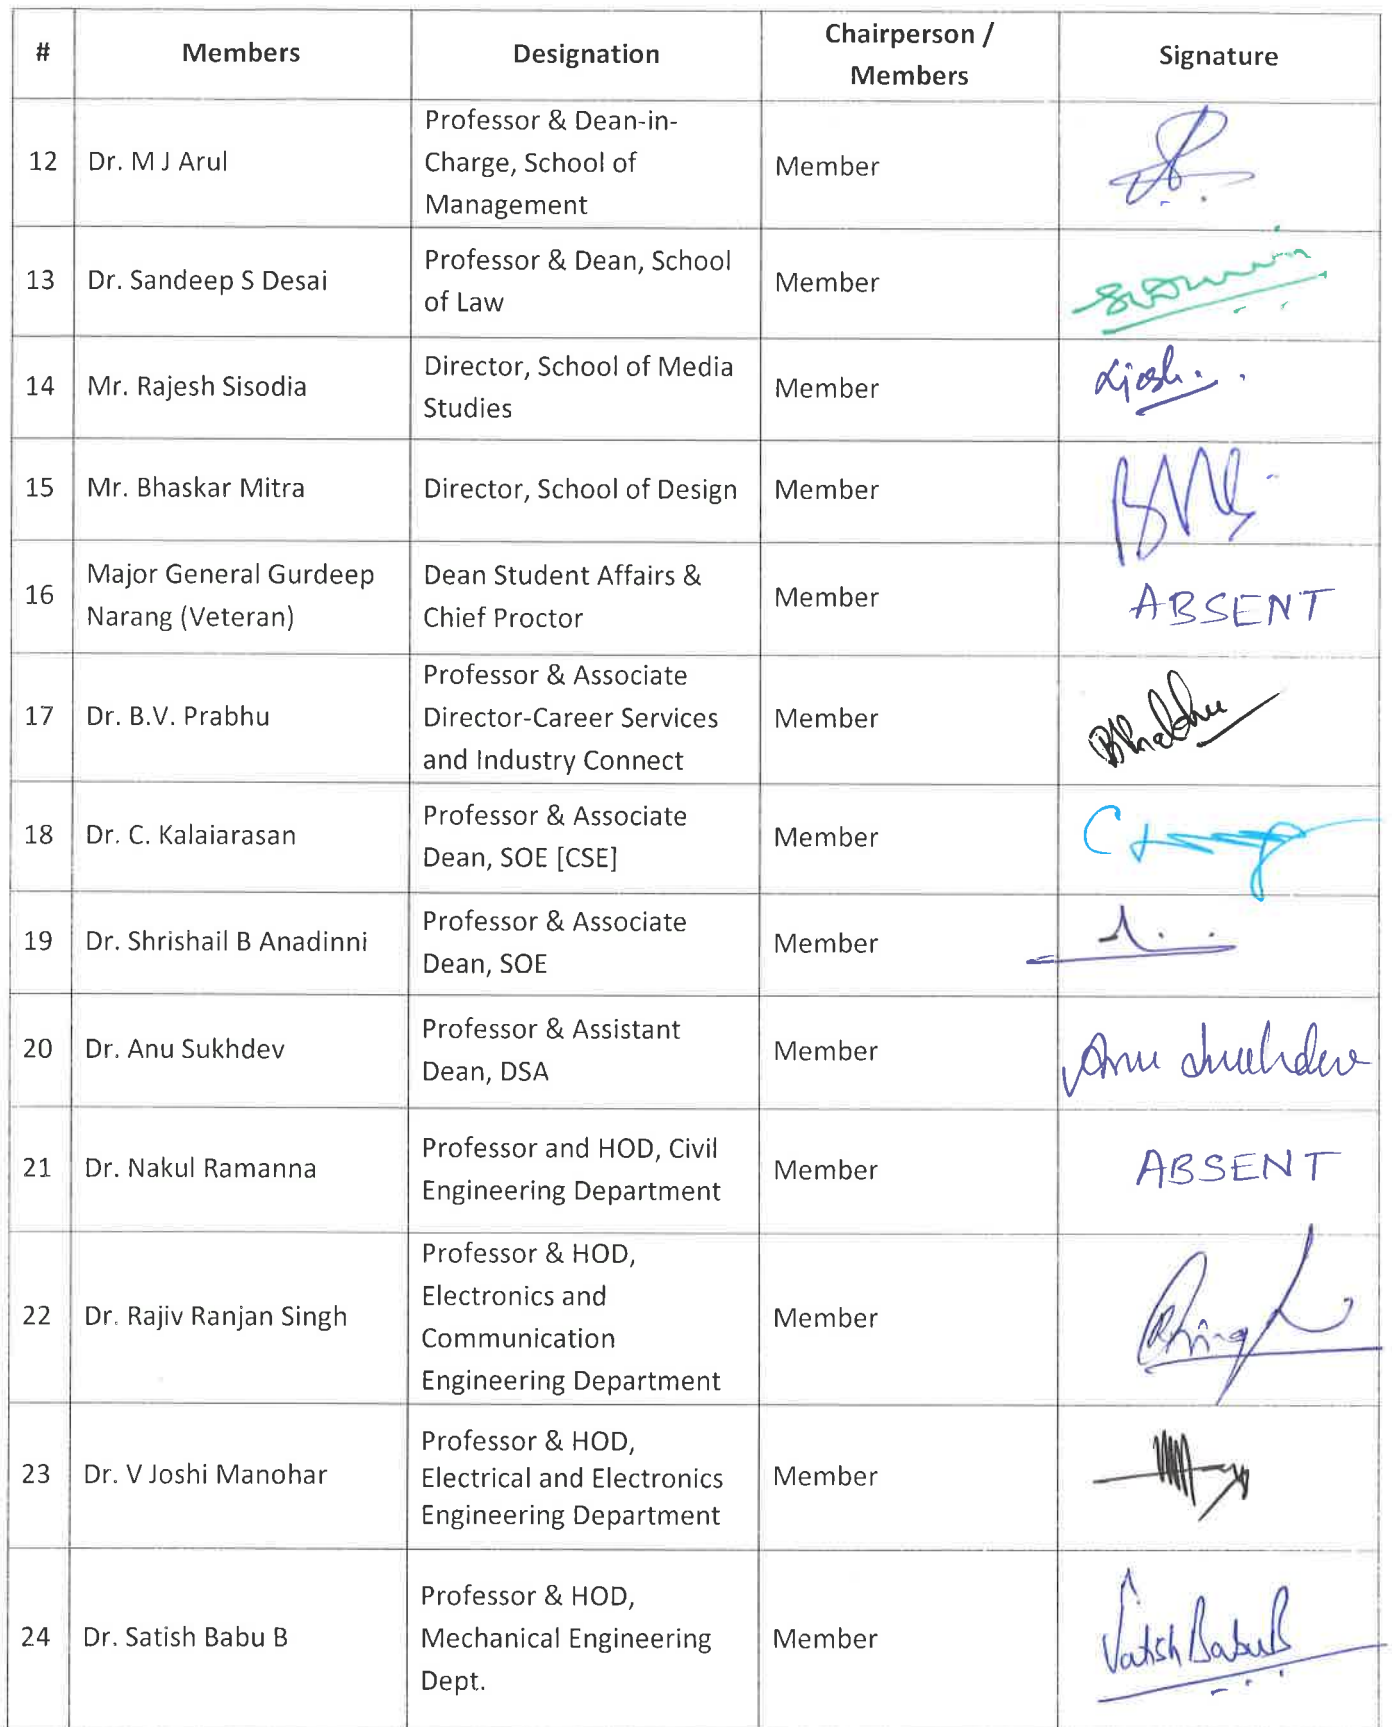 # Members Designation Chairperson / Members Signature
12 Dr. M J Arul Professor & Dean-in-
Charge, School of
Management Member
13 Dr. Sandeep S Desai Professor & Dean, School
of Law Member
14 Mr. Rajesh Sisodia Director, School of Media
Studies Member
15 Mr. Bhaskar Mitra Director, School of Design Member
16 Major General Gurdeep
Narang (Veteran) Dean Student Affairs &
Chief Proctor Member ABSENT
17 Dr. B.V. Prabhu Professor & Associate
Director-Career Services
and Industry Connect Member
18 Dr. C. Kalaiarasan Professor & Associate
Dean, SOE [CSE] Member
19 Dr. Shrishail B Anadinni Professor & Associate
Dean, SOE Member
20 Dr. Anu Sukhdev Professor & Assistant
Dean, DSA Member
21 Dr. Nakul Ramanna Professor and HOD, Civil
Engineering Department Member ABSENT
22 Dr. Rajiv Ranjan Singh Professor & HOD,
Electronics and
Communication
Engineering Department Member
23 Dr. V Joshi Manohar Professor & HOD,
Electrical and Electronics
Engineering Department Member
24 Dr. Satish Babu B Professor & HOD,
Mechanical Engineering
Dept. Member